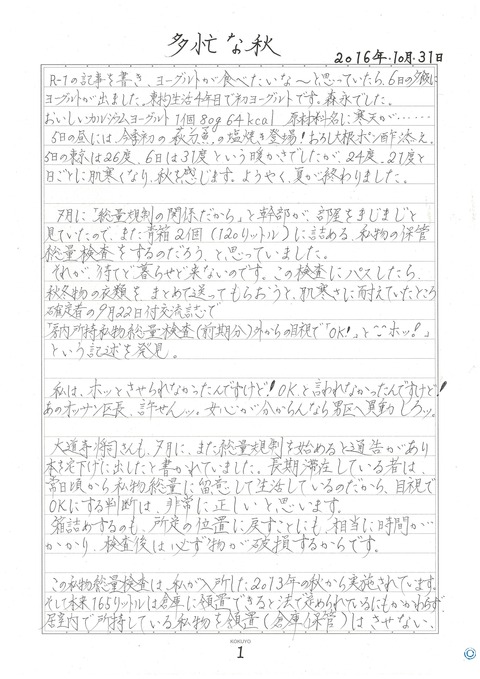 多忙な秋
2016年.10月.31日
R-1の記事を書き、ヨーグルトが食べたいな〜と思っていたら、6日の夕飯に
ヨーグルトが出ました。東拘生活4年目で初ヨーグルトです。森永でした。
おいしいカルシウムヨーグルト1個80g 64kcal 原材料名に寒天が……
5日の昼には、今季初の秋刀魚の塩焼き登場!おろし大根ポン酢添え。
5日の東京は26度、6日は31度という暖かさでしたが、24度、21度と
日ごとに肌寒くなり、秋を感じます。ようやく、夏が終わりました。
9月に「総量規制の関係だから」と幹部が、部屋をまじまじと
見ていたので、また青箱2個(120リットル)に詰める、私物の保管
総量検査をするのだろう、と思っていました。
それが、待てど暮らせど来ないのです。この検査にパスしたら、
秋冬物の衣類を、まとめて送ってもらおうと、肌寒さに耐えていたところ
確定者の9月22日付交流誌で
「居内所持私物総量検査(前期分)外からの目視で「OK!」と ホッ!」
という記述を発見。
私は、ホッとさせられなかったんですけど!OKと言われなかったんですけど!
あのオッサン区長、許せんッ。女心が分からんなら男区へ異動しろッ。
大道寺将司さんも、9月に、また総量規制を始めると通告があり
本を宅下げに出したと書かれていました。長期滞在している者は、
常日頃から私物総量に留意して生活しているのだから、目視で
OKにする判断は、非常に正しいと思います。
箱詰めするのも、所定の位置に戻すことにも、相当に時間が…
かかり、検査後は必ず物が破損するからです。
この私物総量検査は、私が入所した2013年の秋から実施されています。
そして本来165リットルは倉庫に領置できると法で定められているにもかかわらず、
居室内で所持している私物を領置(倉庫保管)はさせない、
KOKUYO
1